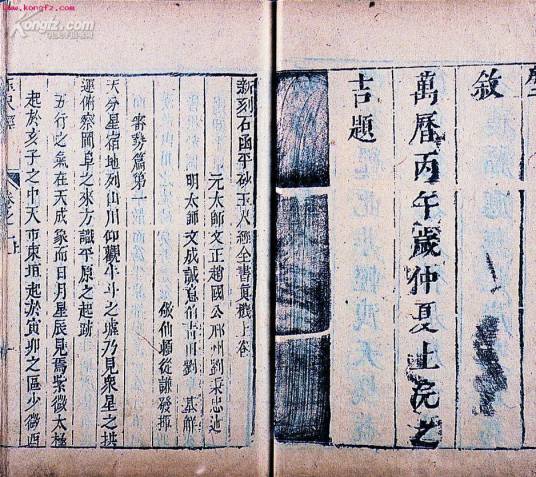 www.kongfz.com
Kongfz.com
敘
萬曆丙午歲仲夏上浣之
吉題
新刻石函平砂玉尺經全書真機上卷
元太師文正趙國公邢州劉秉忠述
明太師文成誠意伯青田劉基解
後仙賴從謙發揮
審勢篇第一
天分星宿地列山川仰觀牛斗之墟乃見眾星之拱
運俯察岡阜之來方識平原之起跡
五行之氣在天成象而日月星辰見焉紫微太極
起於亥子之中天市東垣起於寅卯之區少微西
卷之一上